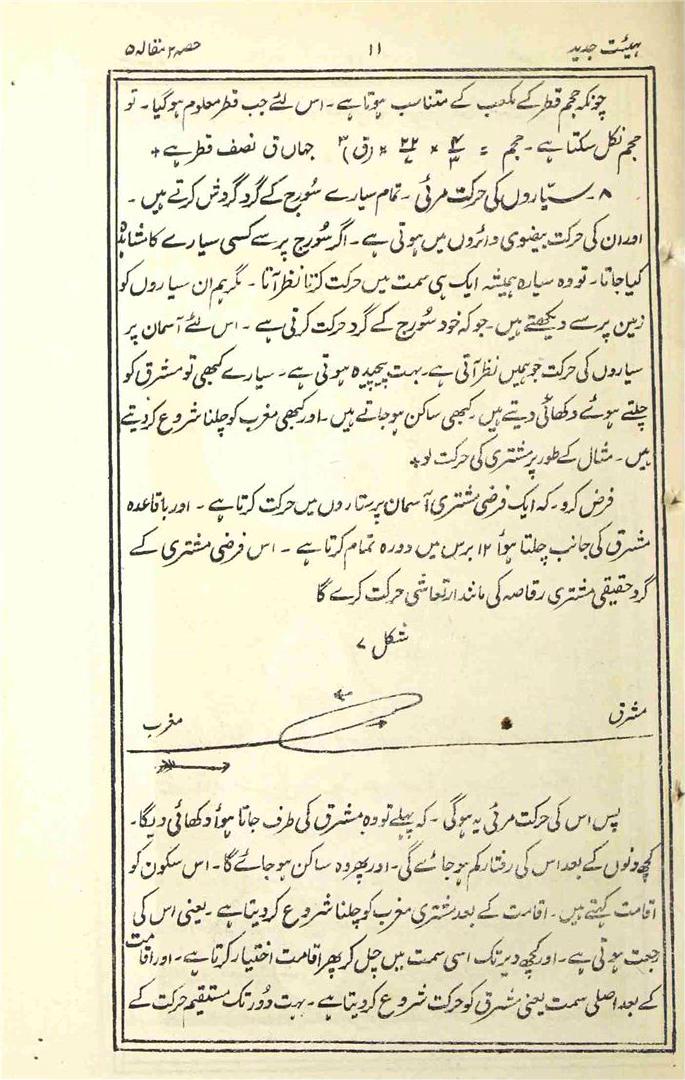 ہیئت جدید ۱۱ حصہ ۲ مقالہ ۵
چونکہ حجم قطر کے مکعب کے متناسب ہوتا ہے ۔ اس لئے جب قطر معلوم ہوگیا ۔ تو
حجم نکل سکتا ہے ۔ حجم = ۴/۳ × ۲۲/۷ × (ق)۳ جہاں ق نصف قطر ہے +
۸ ۔ سیّاروں کی حرکت مرئی ۔ تمام سیارے سُورج کے گرد گردش کرتے ہیں ۔
اور ان کی حرکت بیضوی دائروں میں ہوتی ہے ۔ اگر سُورج پر سے کسی سیارے کا مشاہدہ
کیا جاتا ۔ تو وہ سیارہ ہمیشہ ایک ہی سمت میں حرکت کرتا نظر آتا ۔ مگر ہم ان سیاروں کو
زمین پر سے دیکھتے ہیں ۔ جو کہ خود سُورج کے گرد حرکت کرتی ہے ۔ اس لئے آسمان پر
سیاروں کی حرکت جو ہمیں نظر آتی ہے ۔ بہت پیچیدہ ہوتی ہے ۔ سیارے کبھی تو مشرق کو
چلتے ہوئے دکھائی دیتے ہیں ۔ کبھی ساکن ہو جاتے ہیں ۔ اور کبھی مغرب کو چلنا شروع کردیتے
ہیں ۔ مثال کے طور پر مشتری کی حرکت لو +
فرض کرو ۔ کہ ایک فرضی مشتری آسمان پر ستاروں میں حرکت کرتا ہے ۔ اور باقاعدہ
مشرق کی جانب چلتا ہؤا ۱۲ برس میں دورہ تمام کرتا ہے ۔ اس فرضی مشتری کے
گرد حقیقی مشتری رقاصہ کی مانند ارتعاشی حرکت کرے گا
شکل ۷
مشرق مغرب
پس اس کی حرکت مرئی یہ ہوگی ۔ کہ پہلے تو وہ مشرق کی طرف جاتا ہؤا دکھائی دیگا ۔
کچھ دنوں کے بعد اس کی رفتار کم ہو جائے گی ۔ اور پھر وہ ساکن ہو جائے گا ۔ اس سکون کو
اقامت کہتے ہیں ۔ اقامت کے بعد مشتری مغرب کو چلنا شروع کردیتا ہے ۔ یعنی اس کی
رجعت ہوتی ہے ۔ اور کچھ دیر تک اسی سمت میں چل کر پھر اقامت اختیار کرتا ہے ۔ اور اقامت
کے بعد اصلی سمت یعنی مشرق کو حرکت شروع کردیتا ہے ۔ بہت دُور تک مستقیم حرکت کے